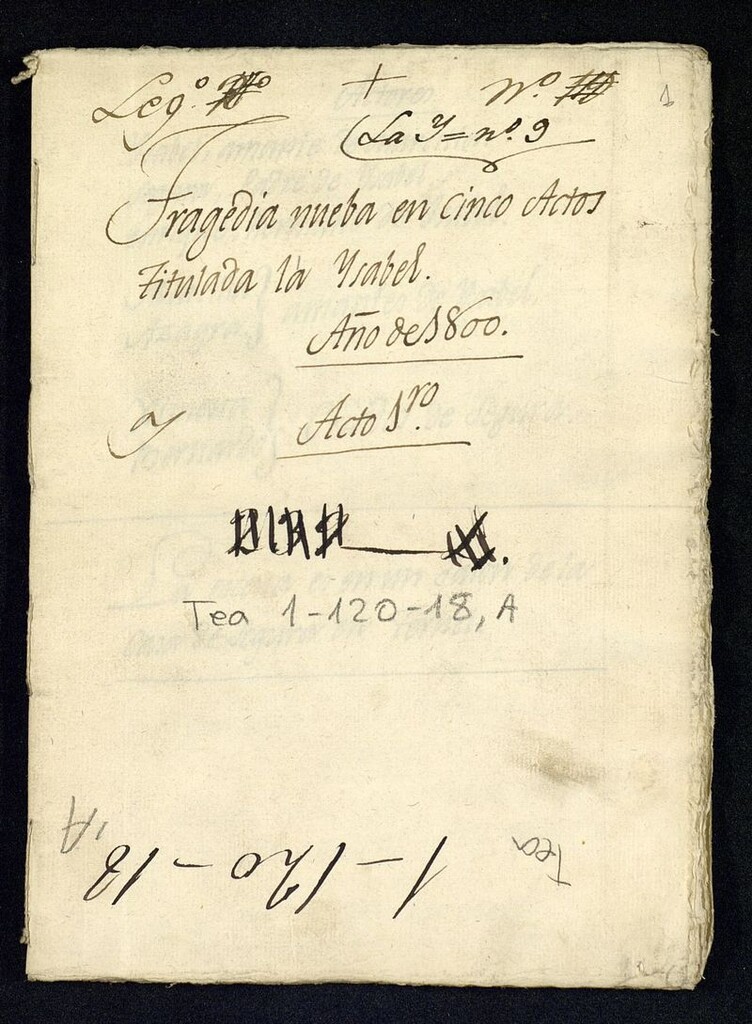 Leg.º + Nº 1
(La Y = nº. 9
Tragedia nueba en cinco Actos
titulada la Ysabel.
Año de 1800.
Acto 1ro.
Tea 1-120-18, A
Tea 1-120-18, A